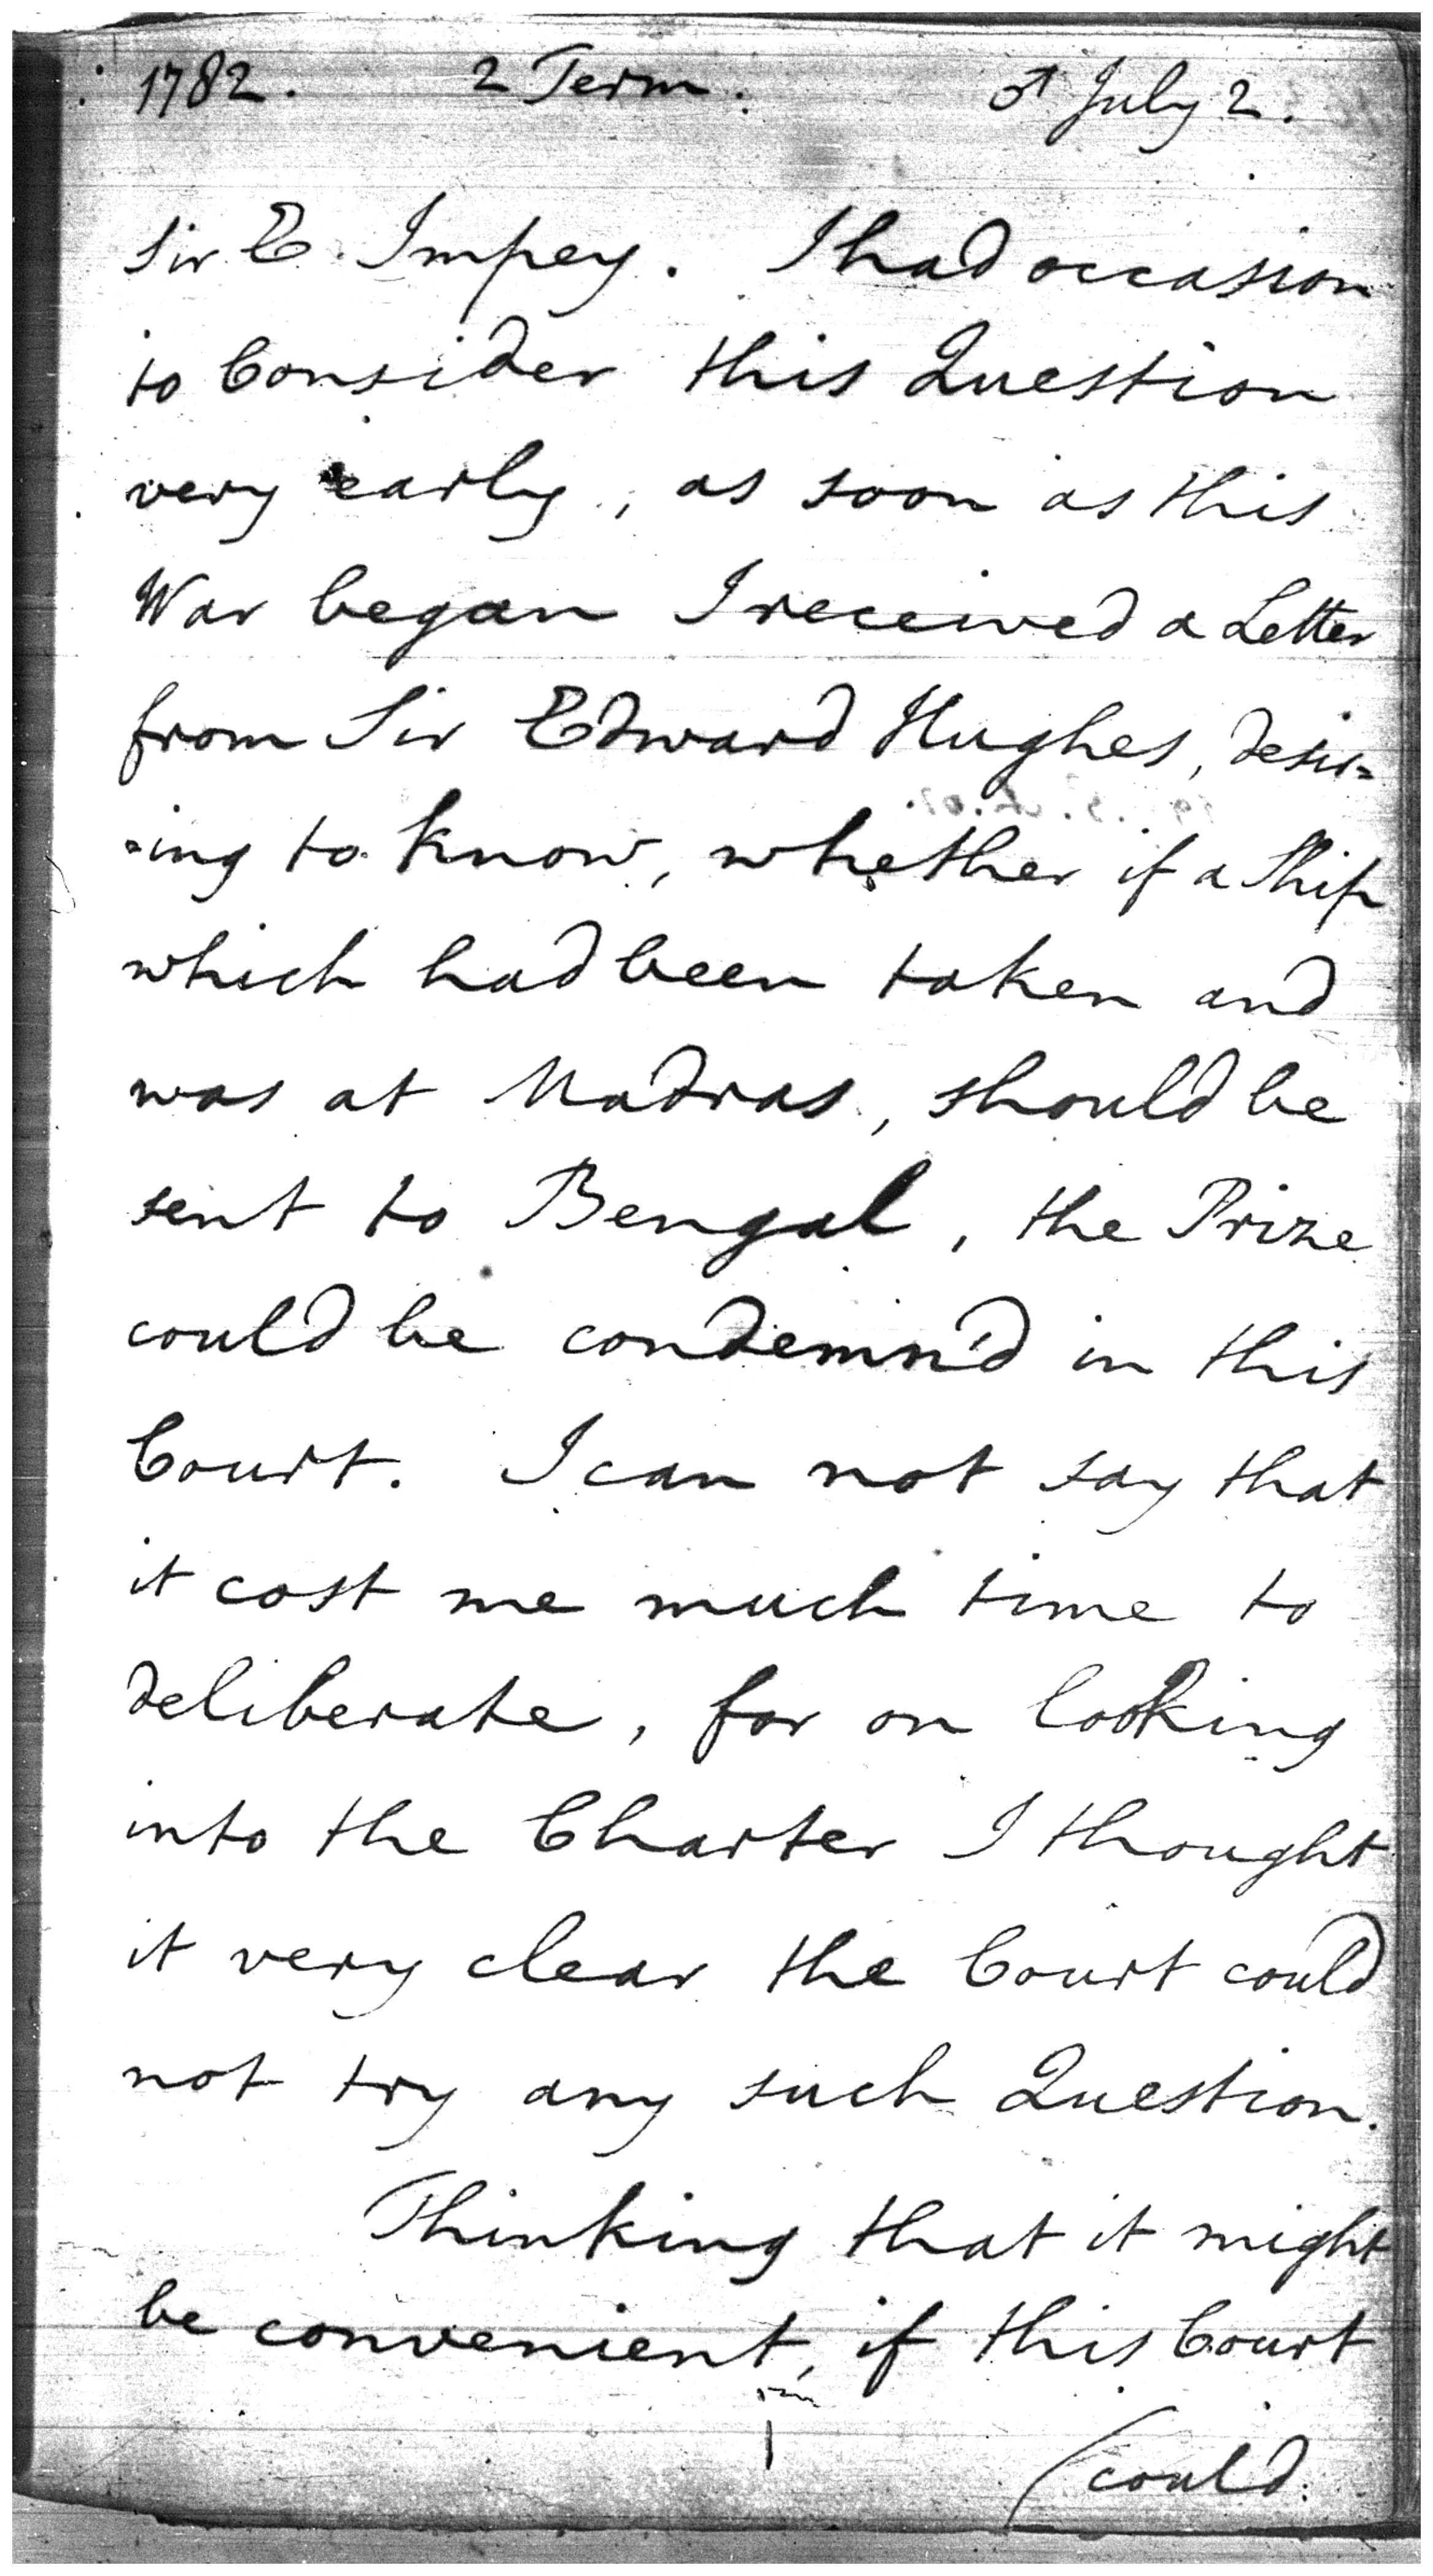 1782. 2 Term. ♂ July 2.
Sir E. Impey. I had occasion
to Consider this Question
very early, as soon as this
War began I received a Letter
from Sir Edward Hughes, desir=
=ing to know, whether if a Ship
which had been taken and
was at Madras, should be
sent to Bengal, the Prize
could be condemn'd in this
Court. I can not say that
it cost me much time to
deliberate, for on looking
into the Charter I thought
it very clear the Court could
not try any such Question.
Thinking that it might
be convenient, if this Court
/could